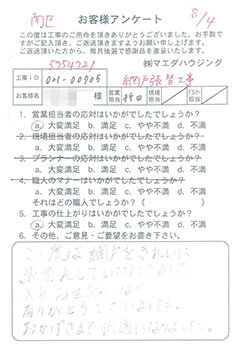 お客様アンケート
8/4
この度は工事のご用命を頂きありがとうございます。お手数で
すがご記入頂き、ご返送頂きますようお願い申し上げます。
ご返送頂いた方から、毎月抽選で感謝品を進呈いたします。
5954721 ㈱マエダハウジング
工事ID 001-00905 網戸張替工事
お客様名 様 営業担当 現場担当 プランナー担当
1. 営業担当者の応対はいかがでしたでしょうか?
a 大変満足 b. 満足 c. やや不満 d. 不満
2. 現場担当者の応対はいかがでしたでしょうか?
a. 大変満足 b. 満足 c. やや不満 d. 不満
3. プランナーの応対はいかがでしたでしょうか?
a. 大変満足 b. 満足 c. やや不満 d. 不満
4. 職人のマナーはいかがでしたでしょうか?
a. 大変満足 b. 満足 c. やや不満 d. 不満
それはどの職人でしょうか?( )
5. 工事の仕上がりはいかがでしたでしょうか?
a 大変満足 b. 満足 c. やや不満 d. 不満
6. その他、ご意見・ご要望をお書き下さい。
この度は網戸をきれいに
大変
ありがとうございました。
おかげさまで快適になりました。